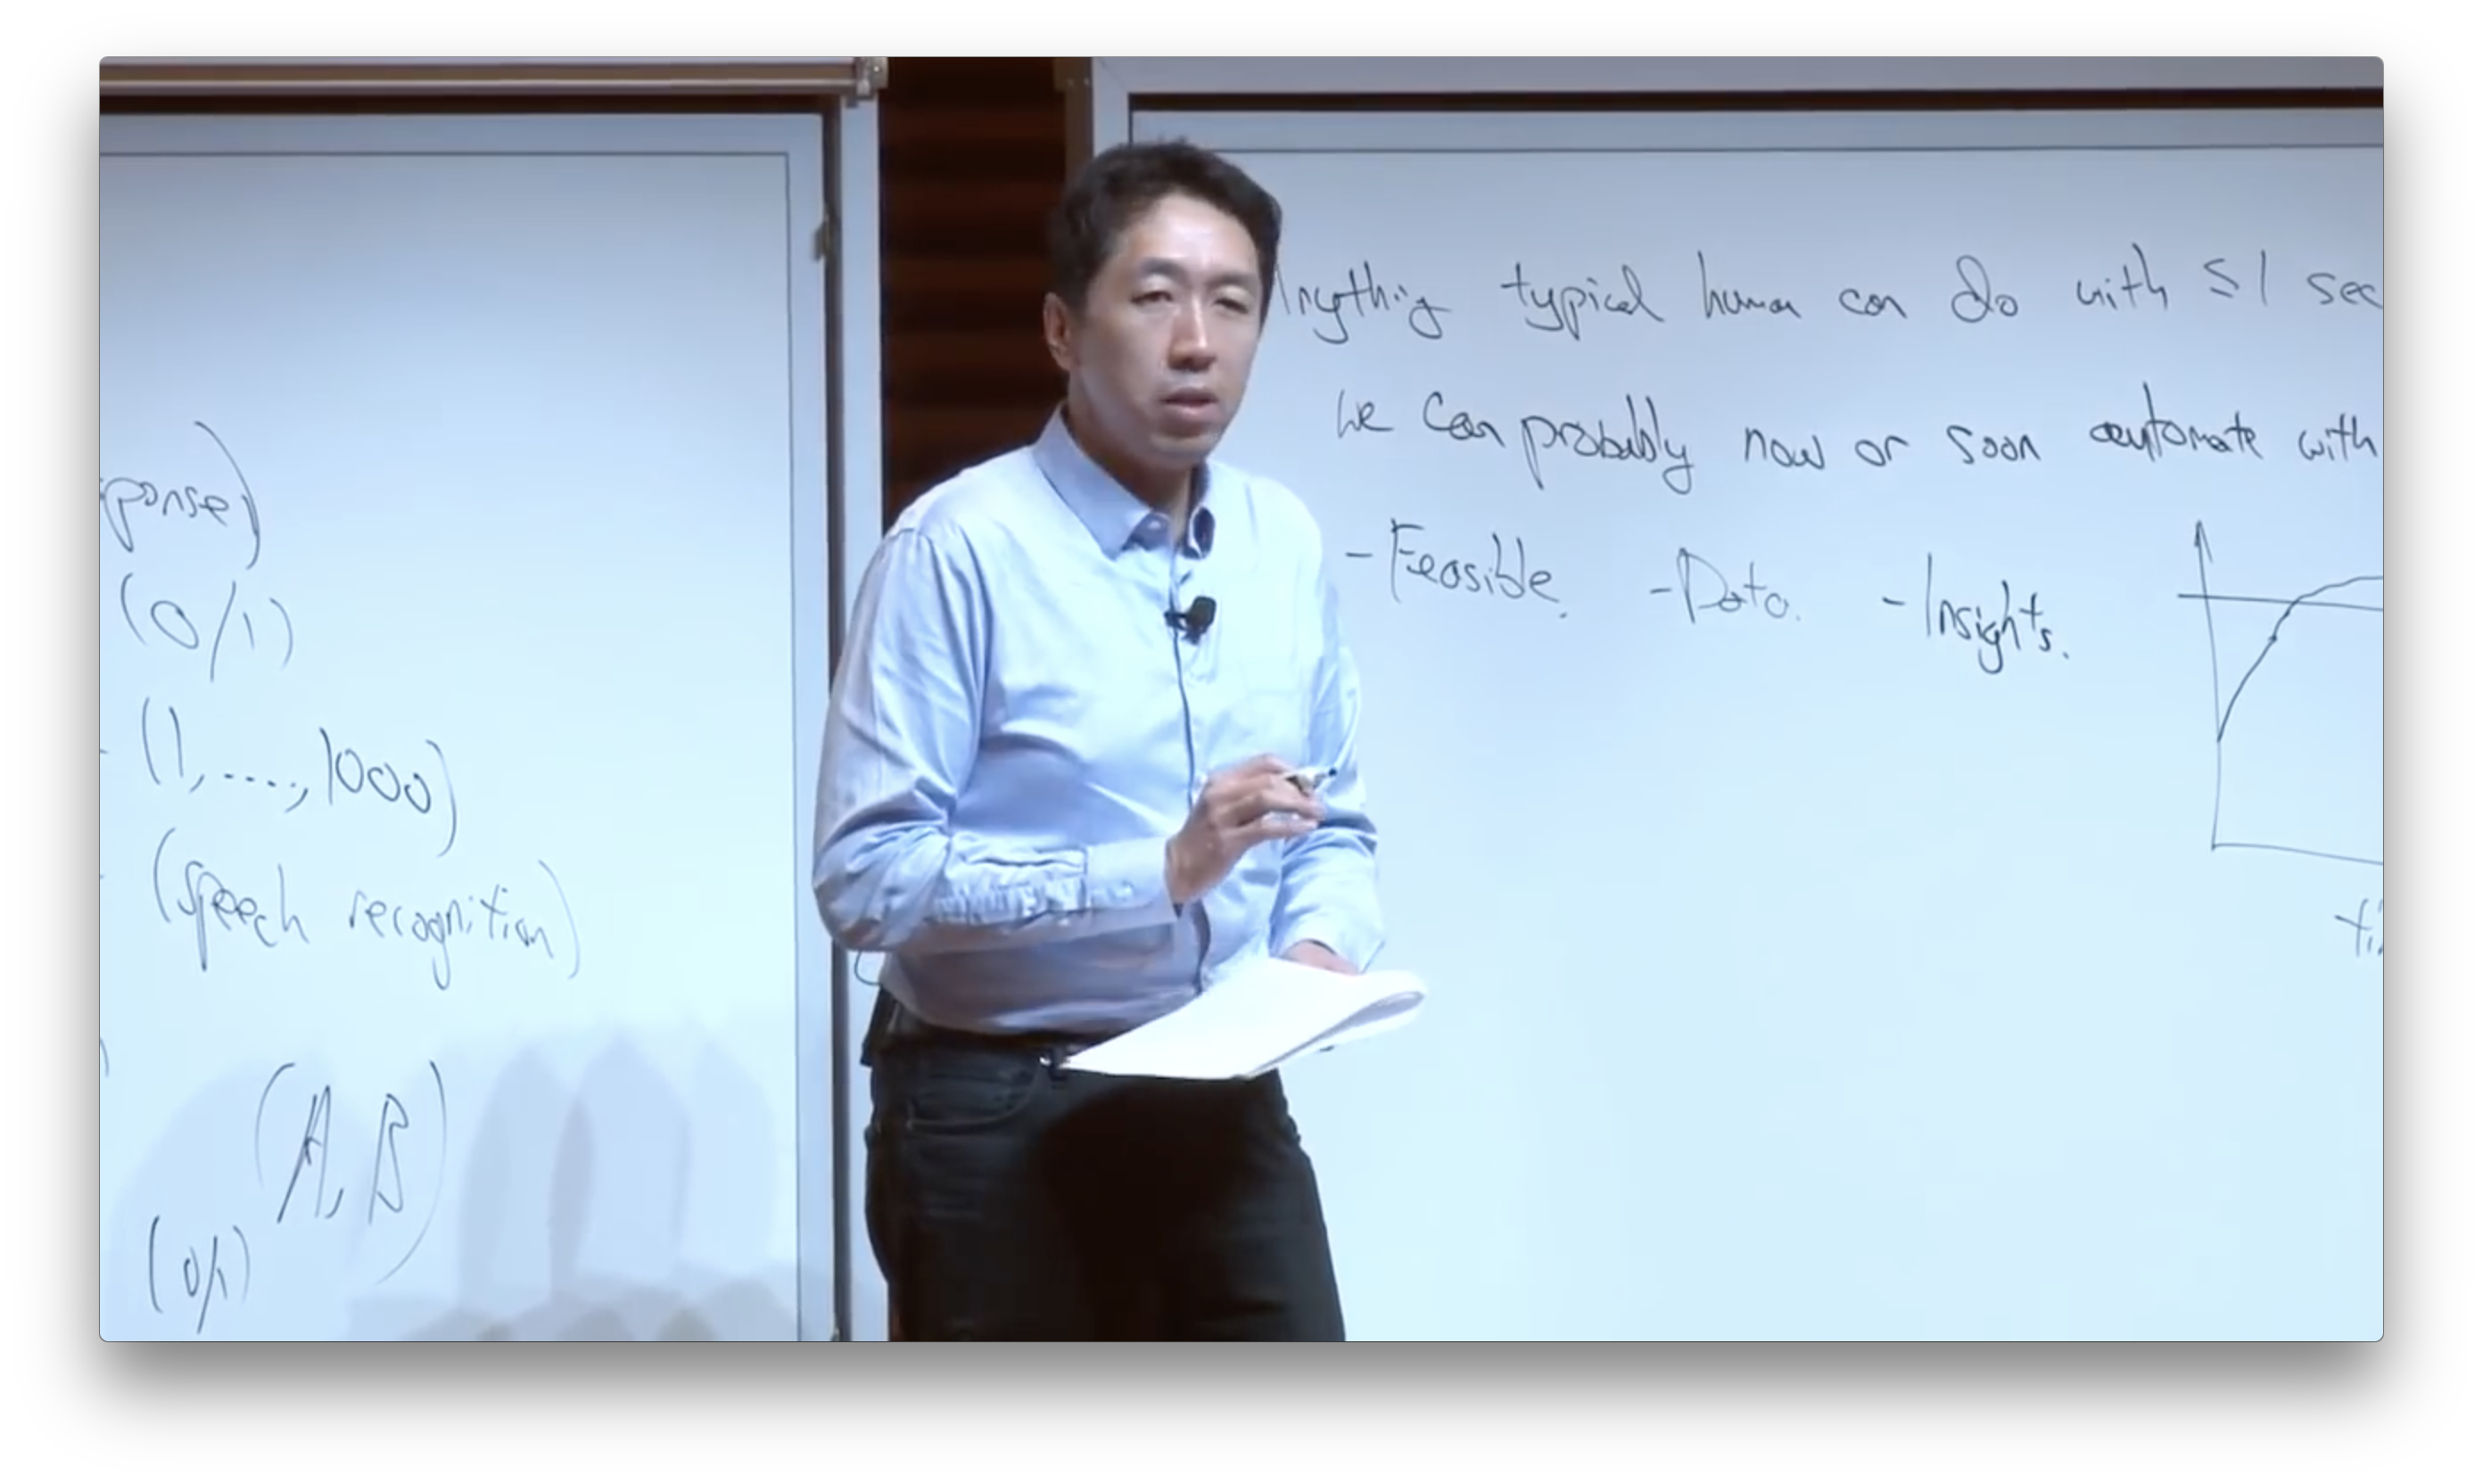 ponse)
(0/1)
(1,....,1000)
(speech recognition)
(A, B)
(0/1)
Anything typical human can do with ≤1 sec
we can probably now or soon automate with
-Feasible. -Data. -Insights.